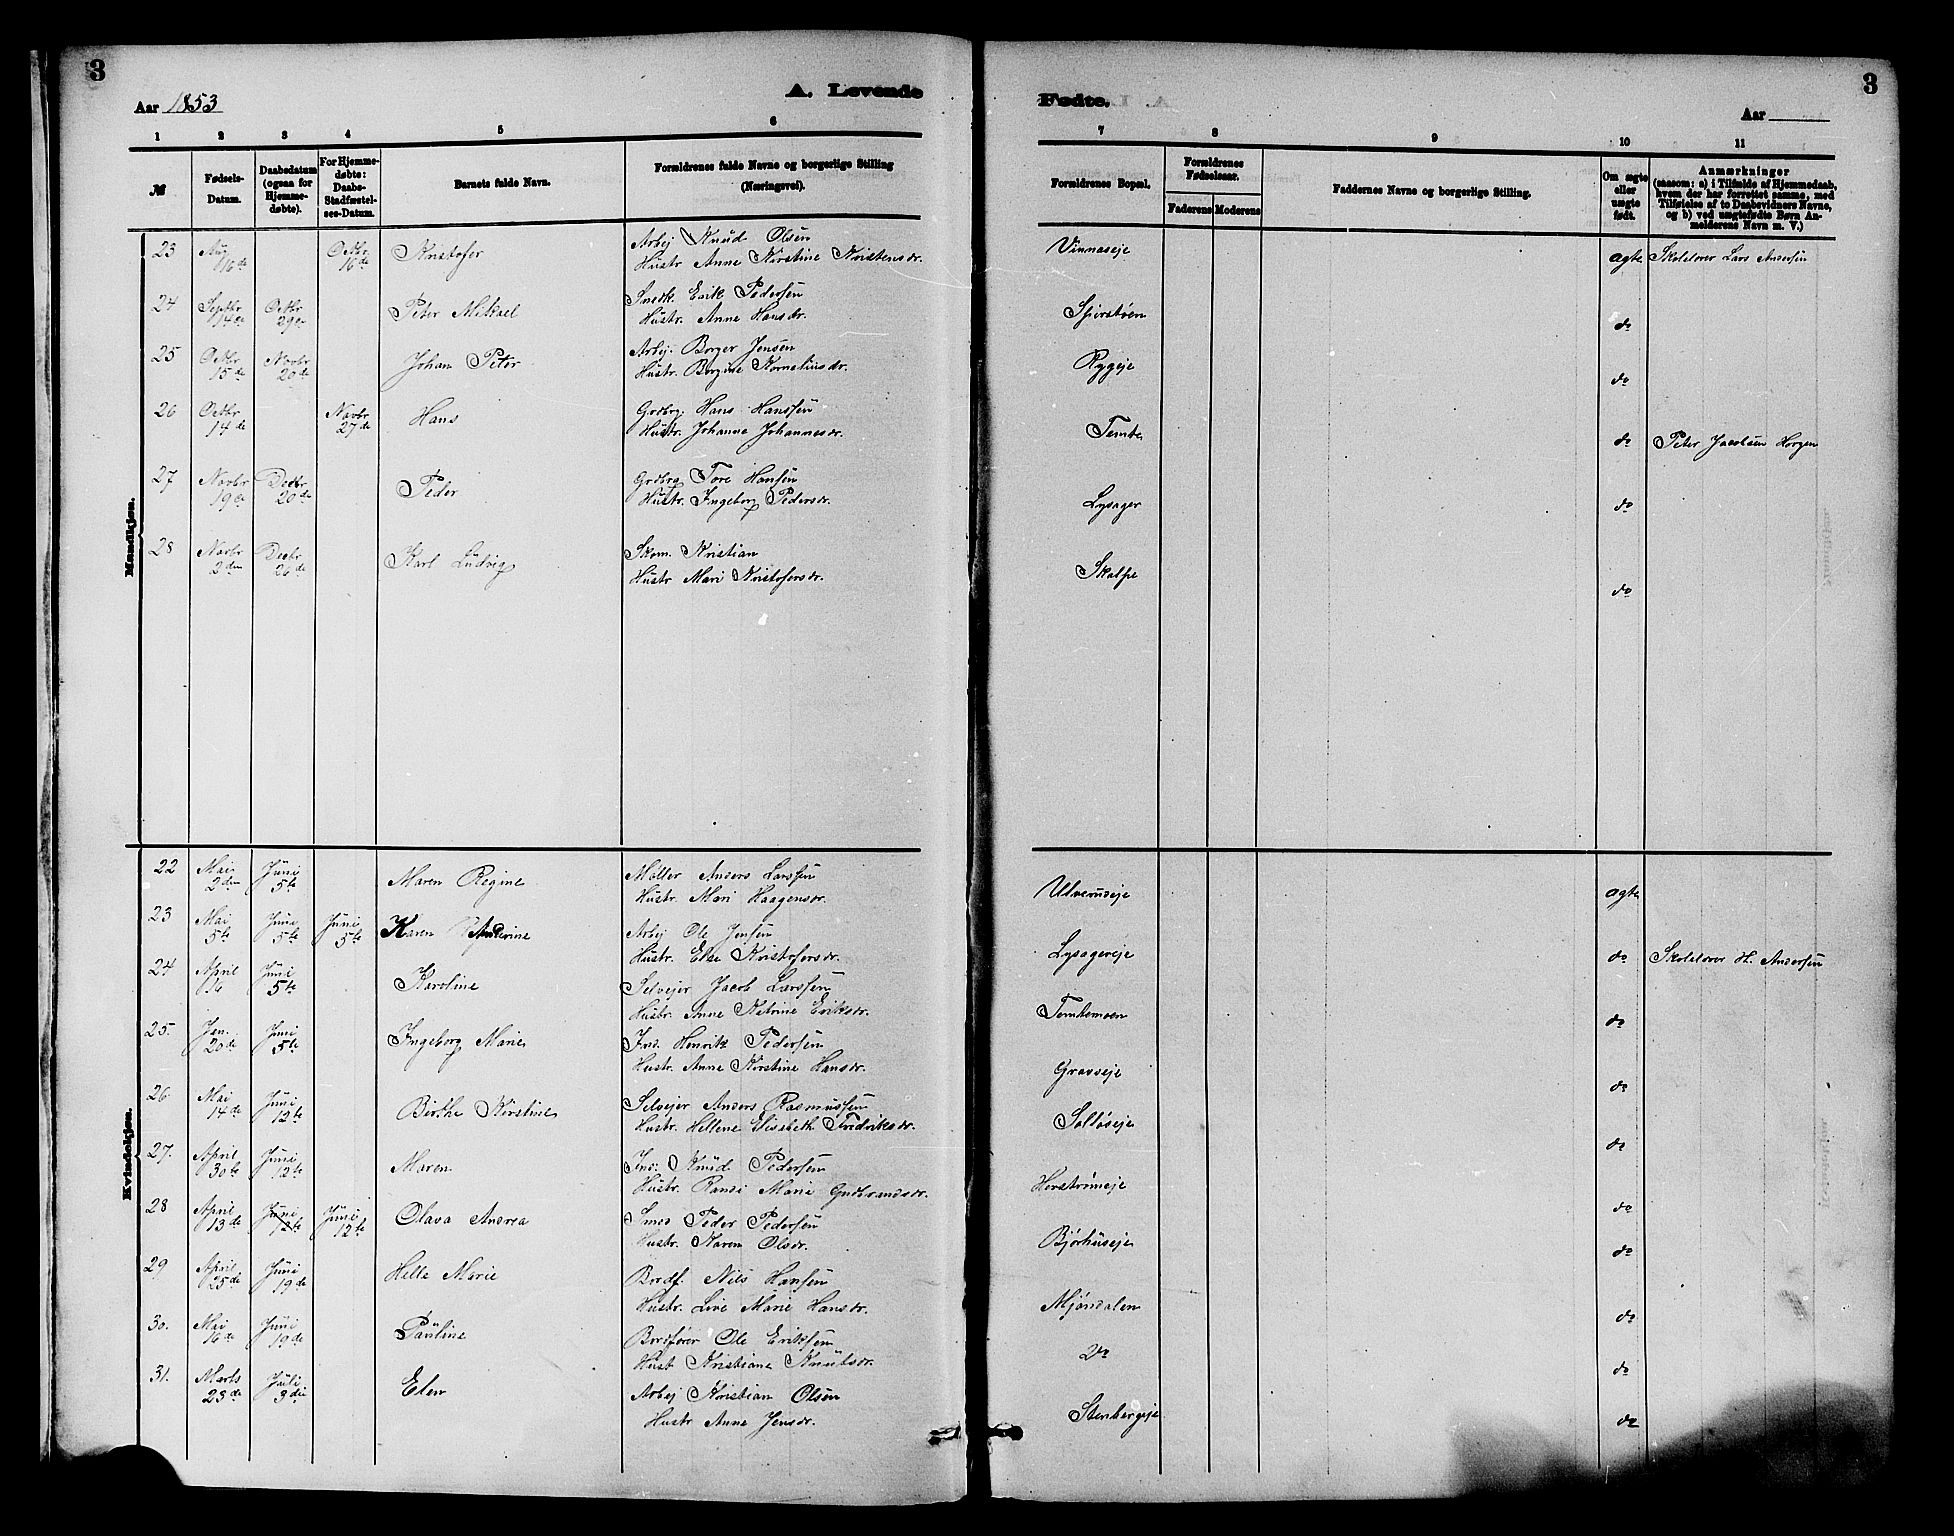 3
Aar 1853
A. Levende
Fødte.
Aar
3
1 2 3 4 5 6 7 8 9 10 11
№
Fødsels-
Datum.
Daabsdatum
(ogsaa for
Hjemme-
døbte).
For Hjemme-
døbte:
Daabs-
Stadfæstel-
ses-Datum.
Barnets fulde Navn.
Forældrenes fulde Navne og borgerlige Stilling
(Næringsvei).
Forældrenes Bopæl.
Forældrenes
Fødselsaar.
Faderens Moderens
Faddernes Navne og borgerlige Stilling.
Om ægte
eller
uægte
født.
Anmærkninger
(saasom: a) i Tilfælde af Hjemmedaab,
hvem der har forrettet samme, med
Tilføielse af to Daabsvidners Navne,
og b) ved uægtefødte Børn An-
melderens Navn m. V.)
Mandkjøn.
23 Aug 16de Octbr 16de Kristofer Arbej Knud Olsen Vinnaseje ægte Skolelærer Lars Andersen
Hustr Anne Kirstine Kristensdr.
24 Septbr 14de Octbr 29de Peter Mikael Snedk. Erik Pedersen do
Hustr. Anne Hansdr.
25 Octbr 15de Novbr 20de Johan Peter Arbej. Borger Jensen Rygeje do
Hustr. Bergine Korneliusdr.
26 Octbr 14de Novbr 27de Hans Grdbrg. Hans Hanssen Temte do Peter Jacobsen Horgen
Hustr. Johanne Johannesdr.
27 Novbr 19de Decbr 20de Peder Grdbrg Tore Hansen Lysager do
Hustr. Ingeborg Pedersdr.
28 Novbr 2den Decbr 26de Karl Ludvig Skom. Kristian Skalpe do
Hustr Mari Kristofersdr.
Kvindekjøn.
22 Mai 2den Juni 5te Maren Regine Møller Anders Larssen Ulverudeje ægte
Hustr. Mari Haagensdr.
23 Mai 5te Juni 5te Juni 5te Karen Andrine Arbej Ole Jensen Lysagereje do Skolelærer H. Andersen
Hustr. Else Kristofersdr.
24 April 16 Juni 5te Karoline Selvejer Jacob Larssen Temtemoen do
Hustr. Anne Katrine Eriksdr.
25. Jan. 20de Juni 5te Ingeborg Marie Ind. Henrik Pedersen Gravseje do
Hustr. Anne Kirstine Hansdr.
26 Mai 14de Juni 12te Birthe Kirstine Selvejer Anders Rasmussen Solløseje do
Hustr. Hellene Elisabeth Fredriksdr.
27. April 30te Juni 12te Maren Ind: Knud Pedersen Horstrømeje do
Hustr. Randi Marie Gudbrandsdr.
28 April 13de Juni 12te Juni 12te Olava Andrea Smed Peder Pedersen Bjørhuseje do
Hustr. Karen Olsdr.
29 April 25de Juni 19de Helle Marie Bordf. Nils Hansen Mjøndalen do
Hustr. Live Marie Hansdr.
30. Mai 16de Juni 19de Pauline Bordfører Ole Eriksen Do do
Hust. Kristiane Knutsdr.
31. Marts 23de Juli 3die Elen Arbej Kristian Olsen Stenbergeje do
Hustr Anne Jensdr.